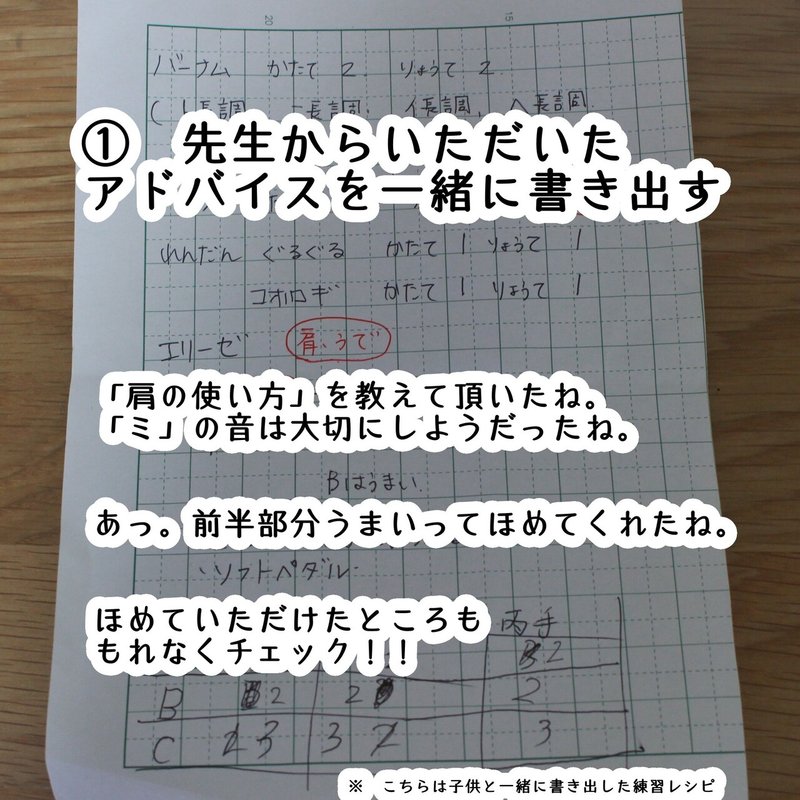 20
15
バーナム かたて 2 りょうて 2
長調 長調、イ長調、ハ長調
① 先生からいただいた
アドバイスを一緒に書き出す
れんだん ぐるぐる かたて 1 りょうて 1
コオロギ かたて 1 りょうて 1
エリーゼ 肩、うで
「肩の使い方」を教えて頂いたね。
「ミ」の音は大切にしようだったね。
Bはうまい。
あっ。前半部分うまいってほめてくれたね。
・ソフトペダル
ほめていただけたところも
もれなくチェック！！
両手
2
B 2 2 2
C 3 3 3
※ こちらは子供と一緒に書き出した練習レシピ